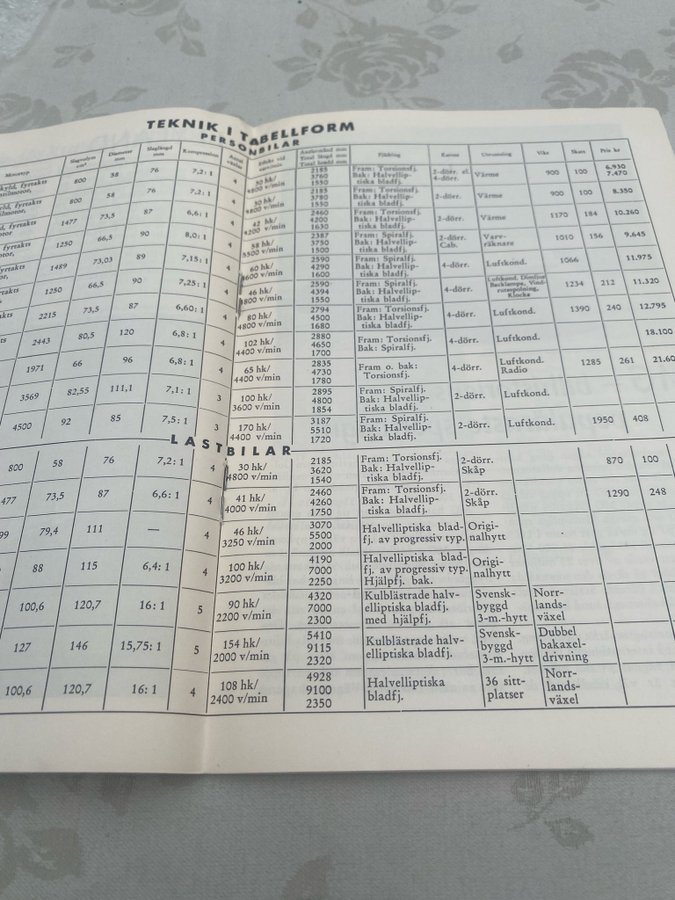 TEKNIK I TABELLFORM
PERSONBILAR
Motortyp Slagvolym cm³ Diameter mm Slaglängd mm Kompression Antal växlar Effekt vid varv/min Axelavstånd mm Total längd mm Total bredd mm Fjädring Kaross Utrustning Vikt Skatt Pris kr
fyrtakts 800 58 76 7,2: 1 4 30 hk/ 4800 v/min 2185 3760 1550 Fram: Torsionsfj. Bak: Halvellip- tiska bladfj. 2-dörr. el. 4-dörr. Värme 900 100 6.930 7.470
fyrtakts 800 58 76 7,2: 1 4 30 hk/ 4800 v/min 2185 3780 1550 Fram: Torsionsfj. Bak: Halvellip- tiska bladfj. 2-dörr. Värme 900 100 8.350
fyrtakts 1477 73,5 87 6,6: 1 4 42 hk/ 4200 v/min 2460 4200 1630 Fram: Torsionsfj. Bak: Halvellip- tiska bladfj. 2-dörr. Värme 1170 184 10.260
fyrtakts 1250 66,5 90 8,0: 1 4 58 hk/ 5500 v/min 2387 3750 1500 Fram: Spiralfj. Bak: Halvellip- tiska bladfj. 2-dörr. Cab. Varv- räknare 1010 156 9.645
1489 73,03 89 7,15: 1 4 60 hk/ 4600 v/min 2590 4290 1600 Fram: Spiralfj. Bak: Halvellip- tiska bladfj. 4-dörr. Luftkond. 1066 11.975
1250 66,5 90 7,25: 1 4 46 hk/ 4800 v/min 2590 4394 1550 Fram: Spiralfj. Bak: Halvellip- tiska bladfj. 4-dörr. Luftkond. Dimljus Klocka 1234 212 11.320
2215 73,5 87 6,60: 1 4 80 hk/ 4800 v/min 2794 4500 1680 Fram: Torsionsfj. Bak: Halvellip- tiska bladfj. 4-dörr. Luftkond. 1390 240 12.795
2443 80,5 120 6,8: 1 4 102 hk/ 4400 v/min 2880 4650 1700 Fram: Torsionsfj. Bak: Spiralfj. 4-dörr. Luftkond. 18.100
1971 66 96 6,8: 1 4 65 hk/ 4400 v/min 2835 4730 1780 Fram o. bak: Torsionsfj. 4-dörr. Luftkond. Radio 1285 261 21.60
3569 82,55 111,1 7,1: 1 3 100 hk/ 3600 v/min 2895 4800 1854 Fram: Spiralfj. Bak: Halvellip- tiska bladfj. 2-dörr. Luftkond.
4500 92 85 7,5: 1 3 170 hk/ 4400 v/min 3187 5510 1720 Fram: Spiralfj. Bak: Halvellip- tiska bladfj. 2-dörr. Luftkond. 1950 408
LASTBILAR
800 58 76 7,2: 1 4 30 hk/ 4800 v/min 2185 3620 1540 Fram: Torsionsfj. Bak: Halvellip- tiska bladfj. 2-dörr. Skåp 870 100
477 73,5 87 6,6: 1 4 41 hk/ 4000 v/min 2460 4260 1750 Fram: Torsionsfj. Bak: Halvellip- tiska bladfj. 2-dörr. Skåp 1290 248
99 79,4 111 — 4 46 hk/ 3250 v/min 3070 5500 2000 Halvelliptiska blad- fj. av progressiv typ. Origi- nalhytt
88 115 6,4: 1 4 100 hk/ 3200 v/min 4190 7000 2250 Halvelliptiska blad- fj. av progressiv typ. Hjälpfj. bak. Origi- nalhytt
100,6 120,7 16: 1 5 90 hk/ 2200 v/min 4320 7000 2300 Kulblästrade halv- elliptiska bladfj. med hjälpfj. Svensk- byggd 3-m.-hytt Norr- lands- växel
127 146 15,75: 1 5 154 hk/ 2000 v/min 5410 9115 2320 Kulblästrade halv- elliptiska bladfj. Svensk- byggd 3-m.-hytt Dubbel bakaxel- drivning
100,6 120,7 16: 1 4 108 hk/ 2400 v/min 4928 9100 2350 Halvelliptiska bladfj. 36 sitt- platser Norr- lands- växel